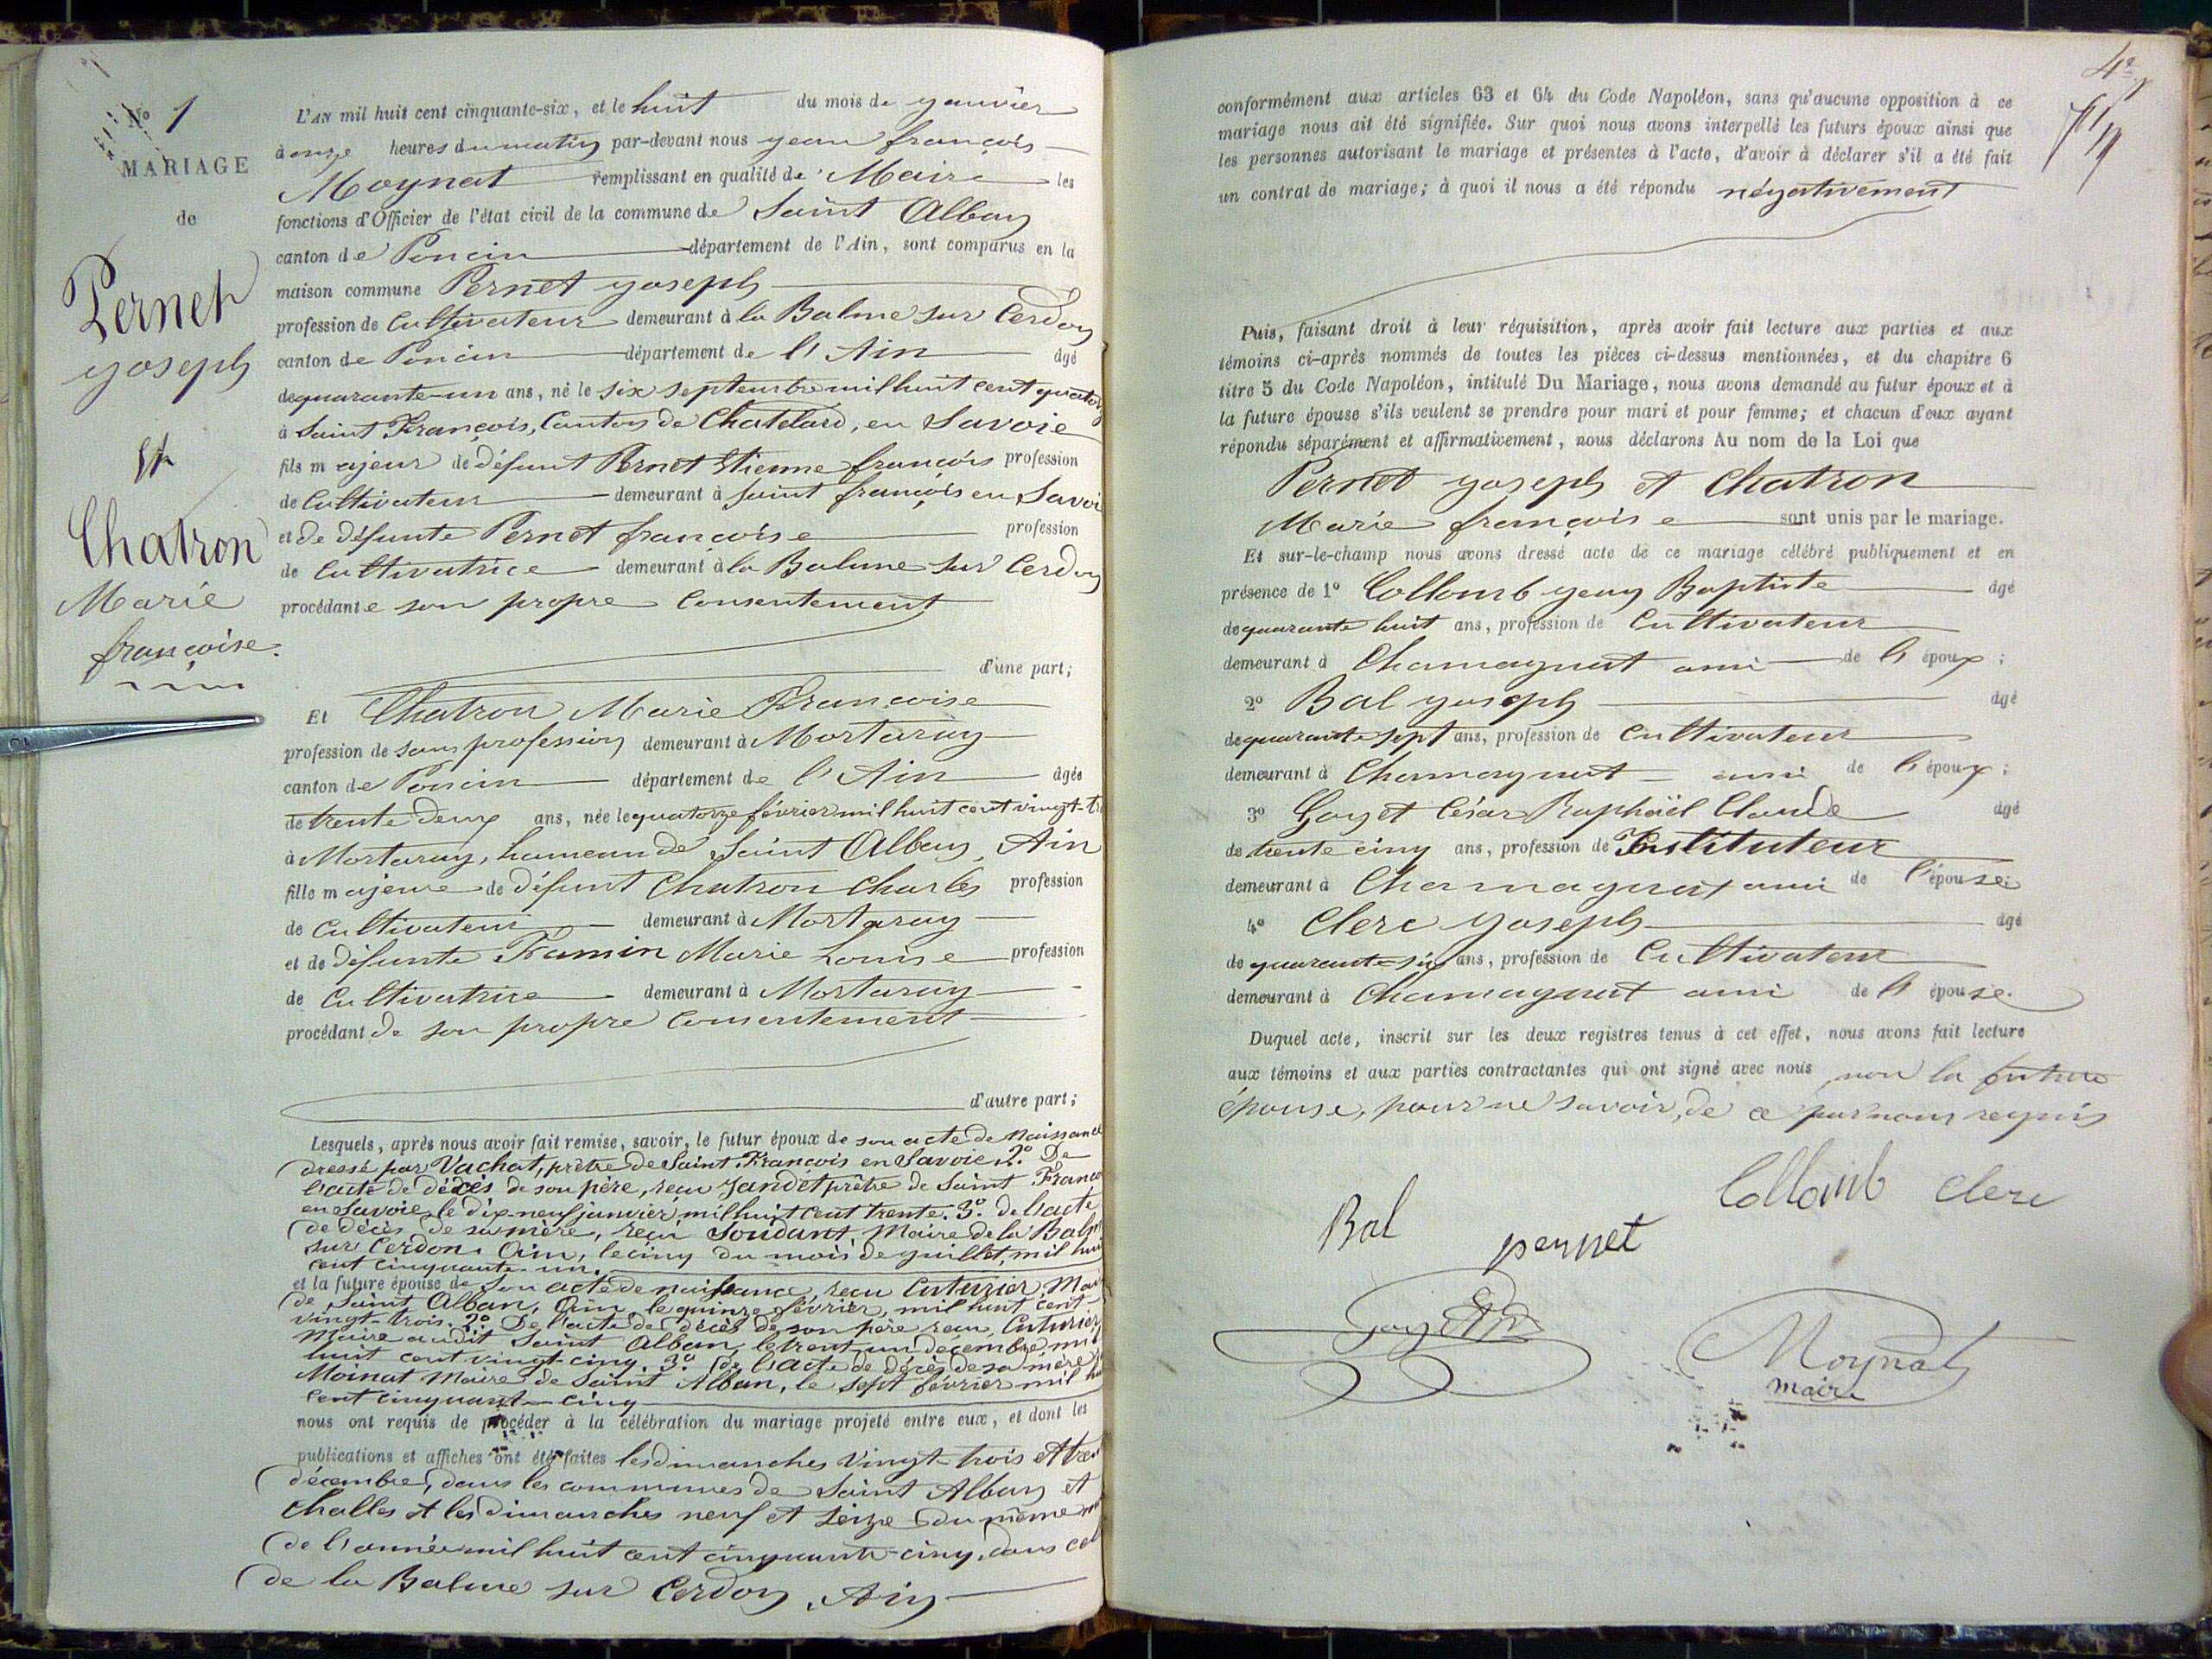 N° 1
MARIAGE
de
Pernet
yoseph
et
Chatron
Marie
françoise.
L'AN mil huit cent cinquante-six, et le huit du mois de yanvier
à onze heures du matin par-devant nous yean françois
Moynat remplissant en qualité de Maire les
fonctions d'Officier de l'état civil de la commune de Saint Alban
canton de Poncin département de l'Ain, sont comparus en la
maison commune Pernet yoseph
profession de Cultivateur demeurant à la Balme sur Cerdon
canton de Poncin département de l'Ain âgé
de quarante-un ans, né le six septembre mil huit cent quatorz
à Saint François, Canton de Chatelard, en Savoie
fils majeur de défunt Pernet Etienne françois profession
de Cultivateur demeurant à Saint françois en Savoi
et de défunte Pernet françoise profession
de Cultivatrice demeurant à la Balme sur Cerdon
procédant e son propre Consentement
d'une part;
Et Chatron Marie Françoise
profession de sans profession demeurant à Mortaray
canton de Poncin département de l'Ain âgée
de trente deux ans, née le quatorze février mil huit cent vingt-tr
à Mortaray, hameau de Saint Alban, Ain
fille majeure de défunt Chatron Charles profession
de Cultivateur demeurant à Mortaray
et de défunte Framin Marie Louise profession
de Cultivatrice demeurant à Mortaray
procédant de son propre Consentement
d'autre part;
Lesquels, après nous avoir fait remise, savoir, le futur époux de son acte de Naissance
dressé par Vachat, prêtre de Saint François en Savoie. 2° De
l'acte de décès de son père, reçu Jandet prêtre de Saint Franço
en Savoie, le dix-neuf janvier mil huit cent trente. 3° de l'acte
de décès de sa mère, reçu Soudant, Maire de la Balm
sur Cerdon. Ain, le cinq du mois de yuillet, mil hui
cent cinquante-un.
et la future épouse de son acte de naissance, reçu Cuturier, Mai
de Saint Alban, Ain le quinze février, mil huit cent
vingt-trois. 2° De l'acte de décès de son père reçu, Cuturier
Maire audit Saint Alban, le trent-un décembre, mil
huit cent vingt-cinq. 3° de l'acte de décès de sa mère
Moinat Maire de Saint Alban, le sept février mil hu
cent cinquante-cinq
nous ont requis de procéder à la célébration du mariage projeté entre eux, et dont les
publications et affiches ont été faites les dimanches vingt-trois et tren
décembre, dans les communes de Saint Alban et
Challes et les dimanches neuf et seize du même m
de l'année mil huit cent cinquante-cinq, dans cel
de la Balme sur Cerdon, Ain
conformément aux articles 63 et 64 du Code Napoléon, sans qu'aucune opposition à ce
mariage nous ait été signifiée. Sur quoi nous avons interpellé les futurs époux ainsi que
les personnes autorisant le mariage et présentes à l'acte, d'avoir à déclarer s'il a été fait
un contrat de mariage; à quoi il nous a été répondu négativement
Puis, faisant droit à leur réquisition, après avoir fait lecture aux parties et aux
témoins ci-après nommés de toutes les pièces ci-dessus mentionnées, et du chapitre 6
titre 5 du Code Napoléon, intitulé Du Mariage, nous avons demandé au futur époux et à
la future épouse s'ils veulent se prendre pour mari et pour femme; et chacun d'eux ayant
répondu séparément et affirmativement, nous déclarons Au nom de la Loi que
Pernet yoseph et Chatron
Marie françoise sont unis par le mariage.
Et sur-le-champ nous avons dressé acte de ce mariage célébré publiquement et en
présence de 1° Collomb yean Baptiste âgé
de quarante huit ans, profession de Cultivateur
demeurant à Chamagnat ami de l'époux;
2° Bal yoseph âgé
de quarante sept ans, profession de Cultivateur
demeurant à Chamagnat ami de l'époux;
3° Goyet César Raphaël Claude âgé
de trente cinq ans, profession de Instituteur
demeurant à Chamagnat ami de l'épouse;
4° Clerc yoseph âgé
de quarante-six ans, profession de Cultivateur
demeurant à Chamagnat ami de l'épouse.
Duquel acte, inscrit sur les deux registres tenus à cet effet, nous avons fait lecture
aux témoins et aux parties contractantes qui ont signé avec nous non la future
épouse, pour ne savoir, de ce par nous requis
Collomb Clerc
Bal
pernet
Goyet
Moynat
maire